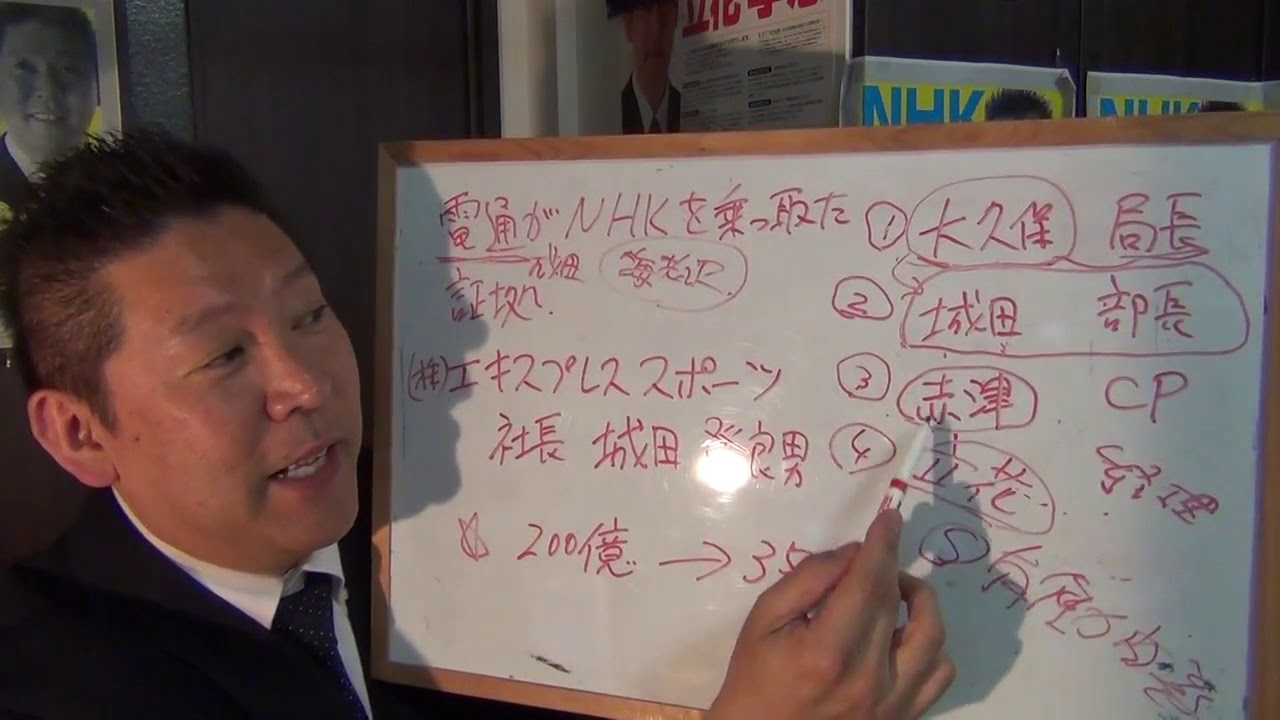 NHK
NHK
電通がNHKを乗っ取た
海老沢
証拠
(株)エキスプレススポーツ
社長 城田 登良男
200億 → 35
① 大久保 局長
② 城田 部長
③ 赤津 CP
④ 立花 経理
⑤